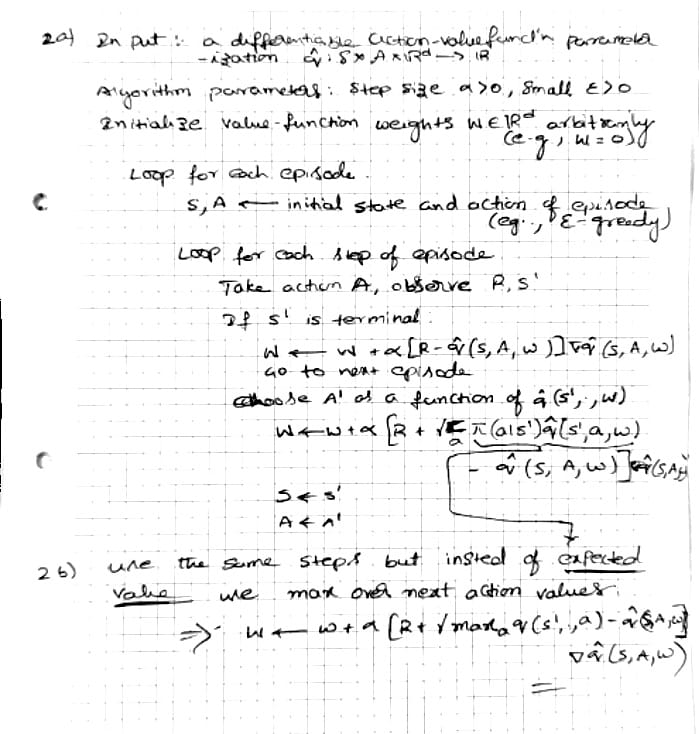 2a) Input : a differentiable action-value funct'n parameter
-ization q̂ : S × A × ℝᵈ → ℝ
Algorithm parameters: Step size α>0, Small ε>0
Initialize value-function weights W ∈ ℝᵈ arbitrarily
(e.g, w = 0)
Loop for each episode.
S, A ← initial state and action of episode
(eg., ε-greedy)
Loop for each step of episode
Take action A, observe R, S'
If S' is terminal:
W ← W + α [R - q̂ (S, A, W)] ∇q̂ (S, A, W)
Go to next episode
Choose A' as a function of q̂ (S', ·, W)
W ← W + α [R + γ Σₐ π(a|S') q̂ (S', a, W)
- q̂ (S, A, W)] ∇q̂ (S, A, W)
S ← S'
A ← A'
2b) use the same steps but insted of expected
value we max over next action values.
⇒ W ← W + α [R + γ maxₐ q (S', ·, a) - q̂ (S, A, W)]
∇q̂ (S, A, W)